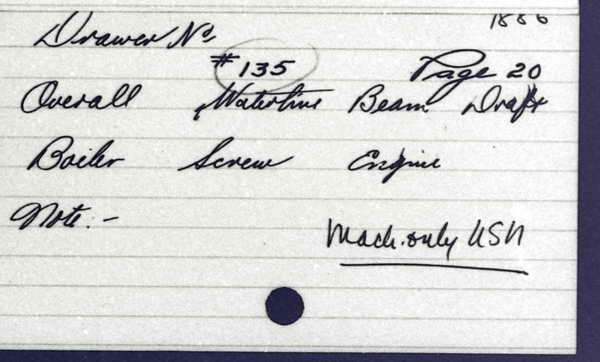 1886
Drawer No.
#135 Page 20
Overall Waterline Beam Draft
Boiler Screw Engine
Note:-
Mach. only USN